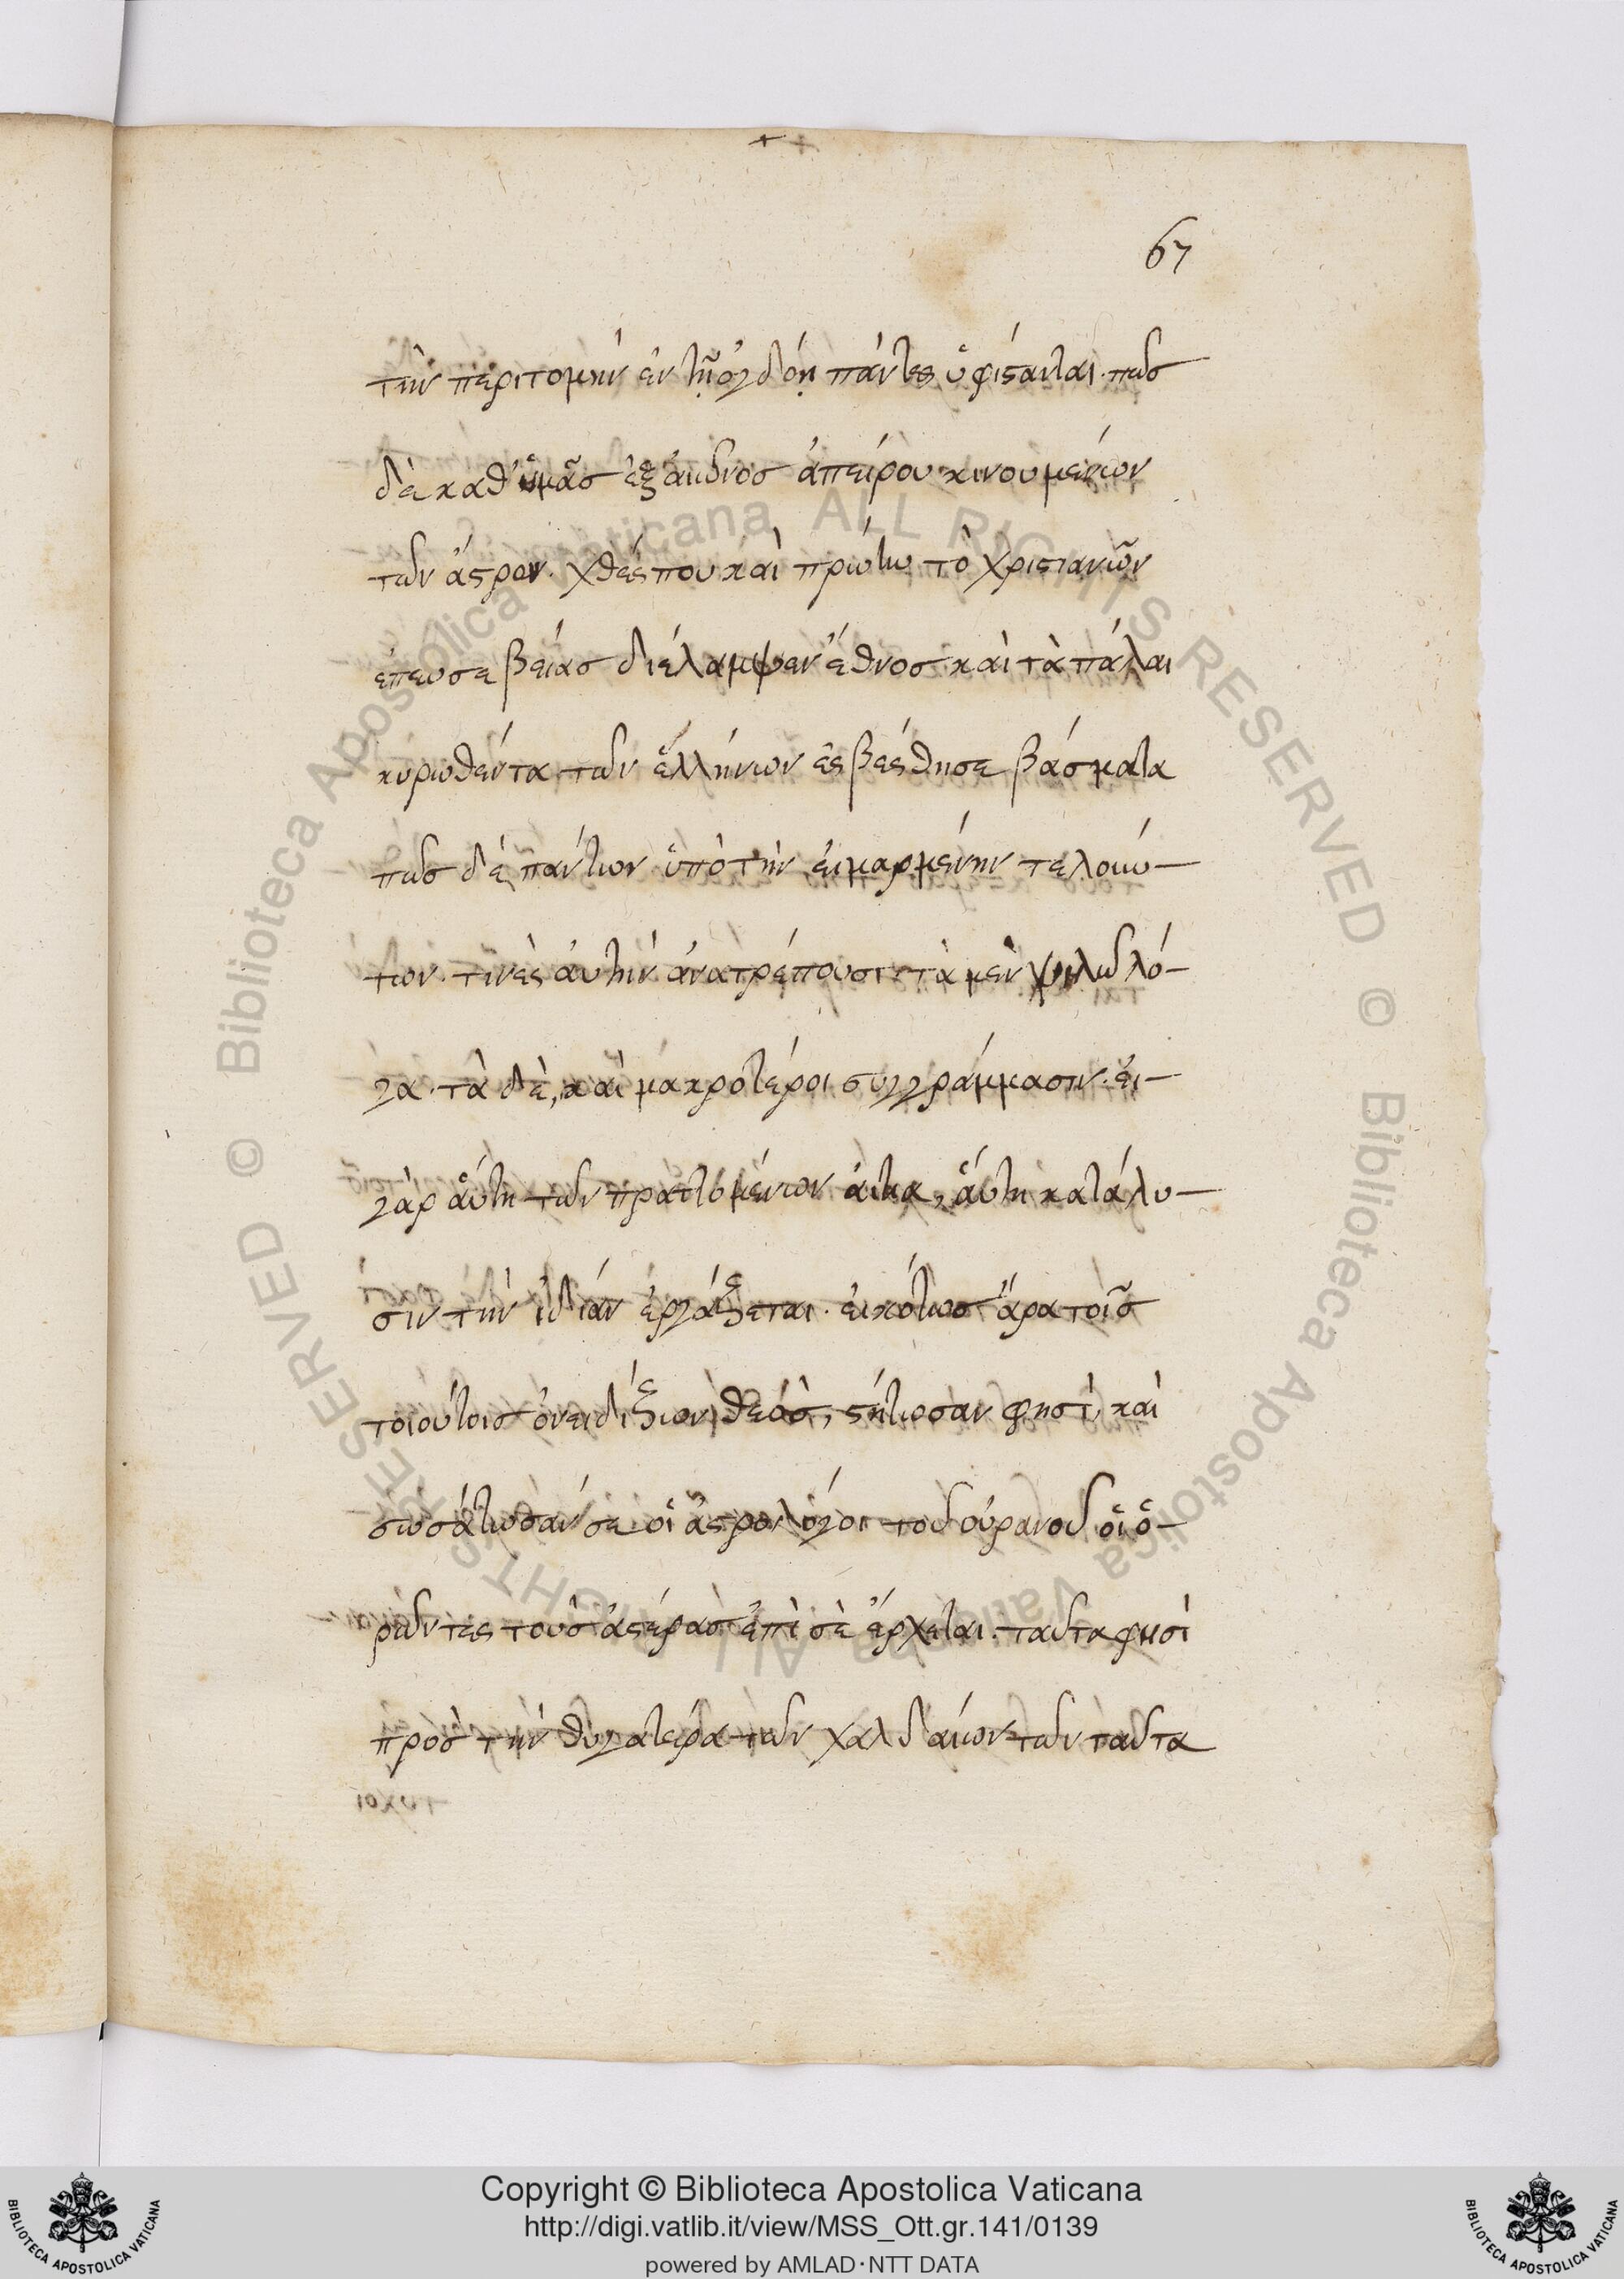 67
τὴν περιτομὴν ἐν τῇ ὀγδόῃ πάντες ὑφίστανται. πῶσ
δὲ καθ' ἡμᾶσ ἐξ αἰῶνοσ ἀπείρου κινουμένων
τῶν ἄστρον. χθές που καὶ πρώτω τὸ χριστιανῶν
ἐπευσεβείασ διέλαμψεν ἔθνοσ καὶ τὰ πάλαι
κυρωθέντα τῶν ἑλλήνων ἐσβέσθησε βάσματα
πῶσ δὲ πάντων ὑπὸ τὴν εἱμαρμένην τελούν-
των. τινὲς ἀυτὴν ἀνατρέπουσι τὰ μὲν ψιλῶ λό-
γα. τὰ δὲ, καὶ μακροτέροι συγγράμμασιν. ἐι-
γὰρ ἅυτη τῶν πραττομένων ἀιτια, ἅυτη κατάλυ-
σιν τὴν ἰδίαν ἐργάζεται. ἐικότωσ ἄρα τοῖσ
τοιούτοισ ὀνειδίζων θεὸσ, στήτωσαν φησὶ καὶ
σωσάτωσάν σε οἱ ἀστρολόγοι τοῦ οὐρανοῦ οἱ ὁ-
ρῶντες τοὺσ ἀστέρασ ἐπὶ σὲ ἔρχεται. ταῦτα φησὶ
πρὸσ τὴν θυγατέρα τῶν χαλδαίων τῶν ταῦτα
Copyright © Biblioteca Apostolica Vaticana
http://digi.vatlib.it/view/MSS_Ott.gr.141/0139
powered by AMLAD·NTT DATA
BIBLIOTECA APOSTOLICA VATICANA
BIBLIOTECA APOSTOLICA VATICANA
© Biblioteca Apostolica Vaticana ALL RIGHTS RESERVED © Biblioteca Apostolica Vaticana ALL RIGHTS RESERVED